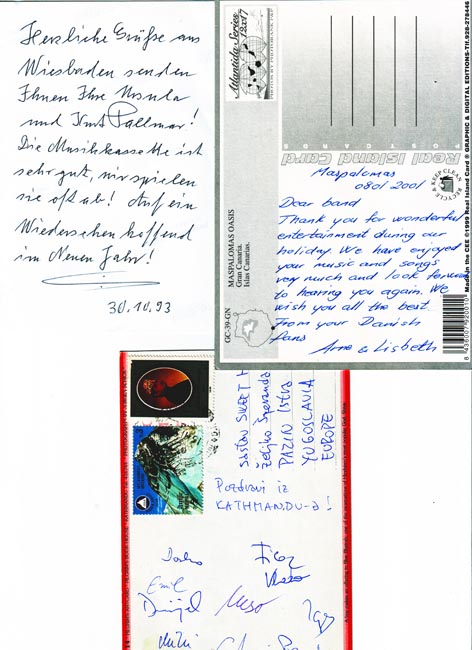 Herzliche Grüße aus
Wiesbaden senden
Ihnen Ihre Ursula
und Kurt Pallmar!
Die Musikkassette ist
sehr gut, wir spielen
sie oft ab! Auf ein
Wiedersehen hoffend
im Neuen Jahr!
30.10.93
Atlantida Series
12x17
Real Island Card
POSTCARDS
KEEP CLEAN
RECYCLE
Made in the CEE ©1999 Real Island Card ® GRAPHIC & DIGITAL EDITIONS-Tlf.928-278446
MASPALOMAS OASIS
Gran Canaria.
Islas Canarias.
GC-39-GN
Maspalomas
0801 2001
Dear band
Thank you for wonderful
entertainment during our
holiday. We have enjoyed
your music and songs
very much and look forward
to hearing you again. We
wish you all the best.
From your Danish
fans
Arne & Lisbeth
Sastav SWEET
Željko
PAZIN Istra
YUGOSLAVIA
EUROPE
Pozdravi iz
KATHMANDU-a!
Emil
Danijel